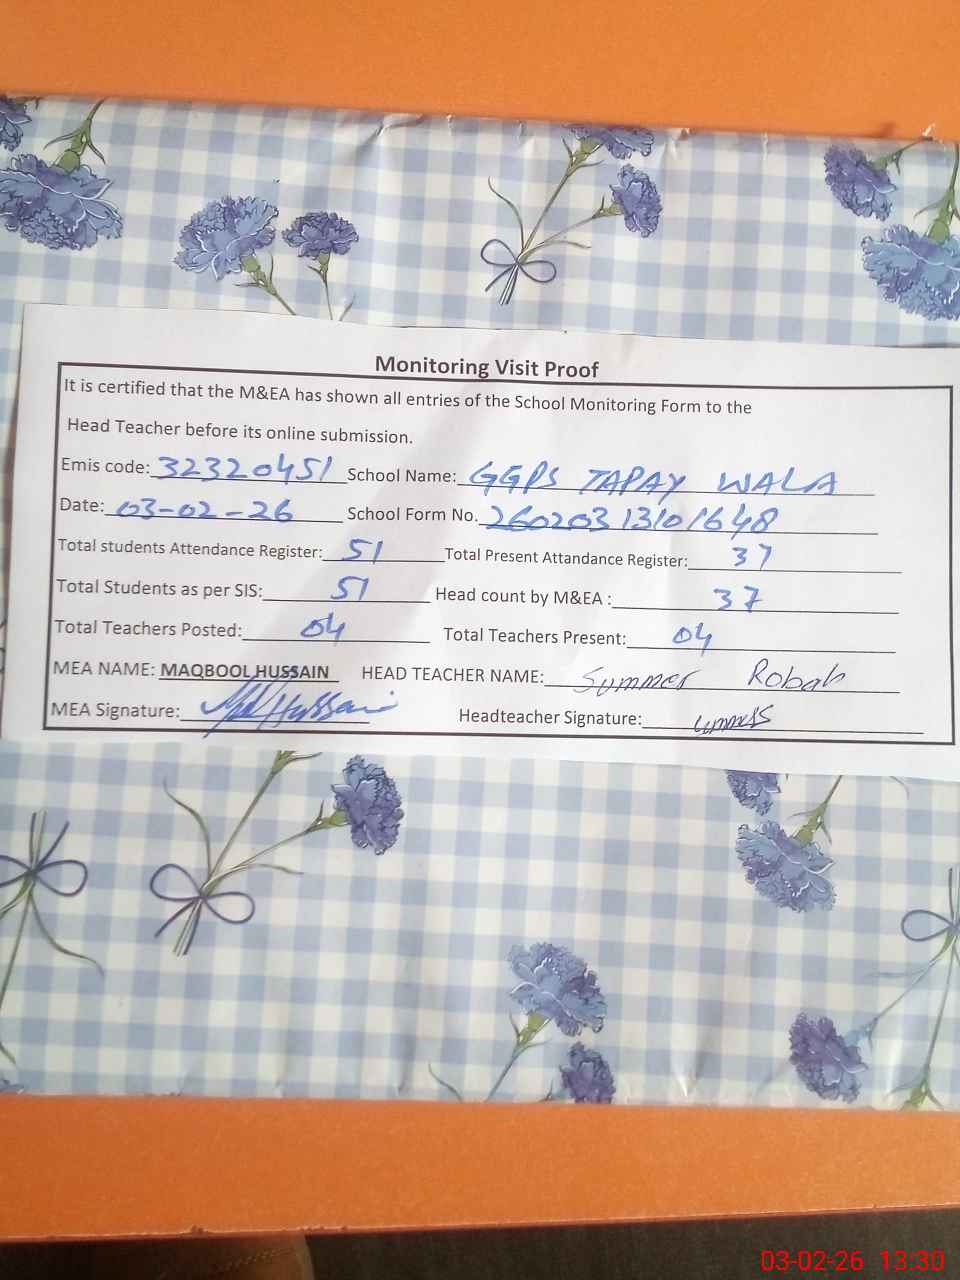 Monitoring Visit Proof
It is certified that the M&EA has shown all entries of the School Monitoring Form to the
Head Teacher before its online submission.
Emis code: 32320451 School Name: GGPS TAPAY WALA
Date: 03-02-26 School Form No. 26020313101648
Total students Attendance Register: 51 Total Present Attandance Register: 37
Total Students as per SIS: 51 Head count by M&EA : 37
Total Teachers Posted: 04 Total Teachers Present: 04
MEA NAME: MAQBOOL HUSSAIN HEAD TEACHER NAME: Summer Robab
MEA Signature: Hussain Headteacher Signature:
03-02-26 13:30